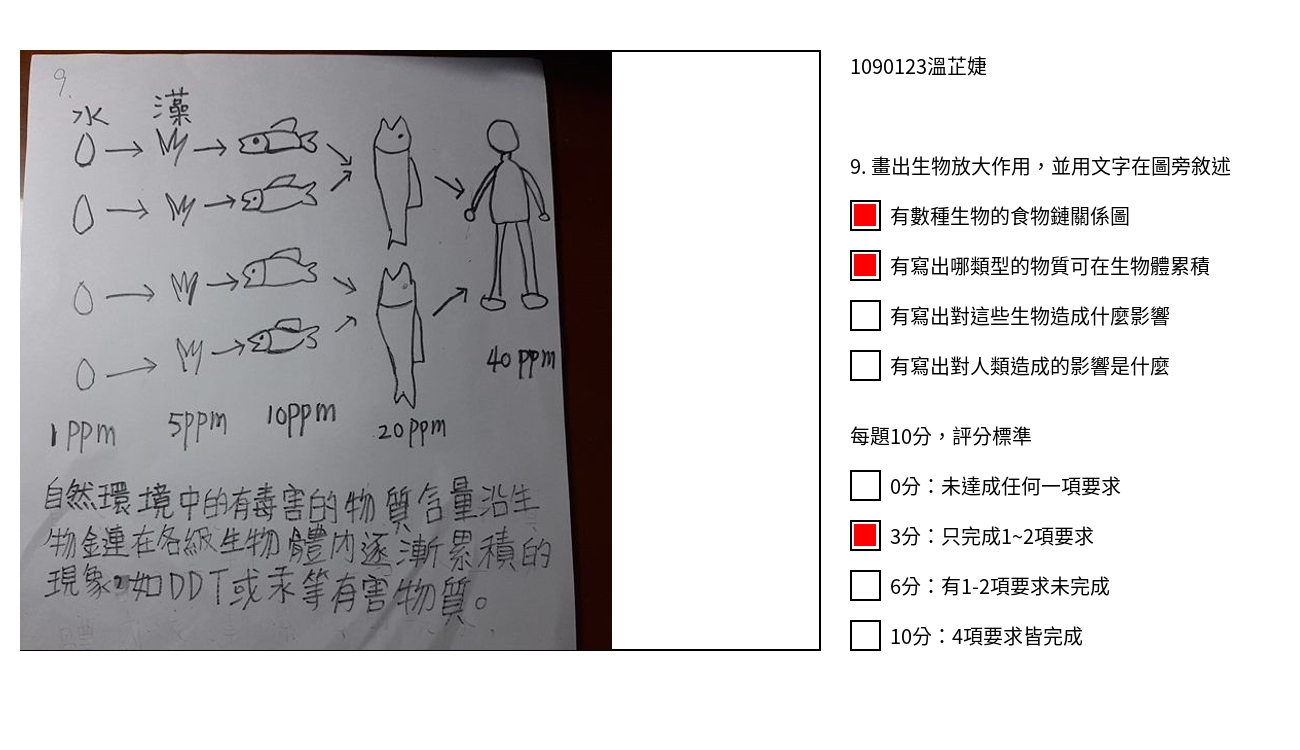 9.
水 藻
40 ppm
1 ppm 5ppm 10ppm 20ppm
自然環境中的有毒害的物質含量沿生
物鏈在各級生物體內逐漸累積的
現象,如DDT或汞等有害物質。
1090123溫芷婕
9. 畫出生物放大作用，並用文字在圖旁敘述
有數種生物的食物鏈關係圖
有寫出哪類型的物質可在生物體累積
有寫出對這些生物造成什麼影響
有寫出對人類造成的影響是什麼
每題10分，評分標準
0分：未達成任何一項要求
3分：只完成1~2項要求
6分：有1-2項要求未完成
10分：4項要求皆完成